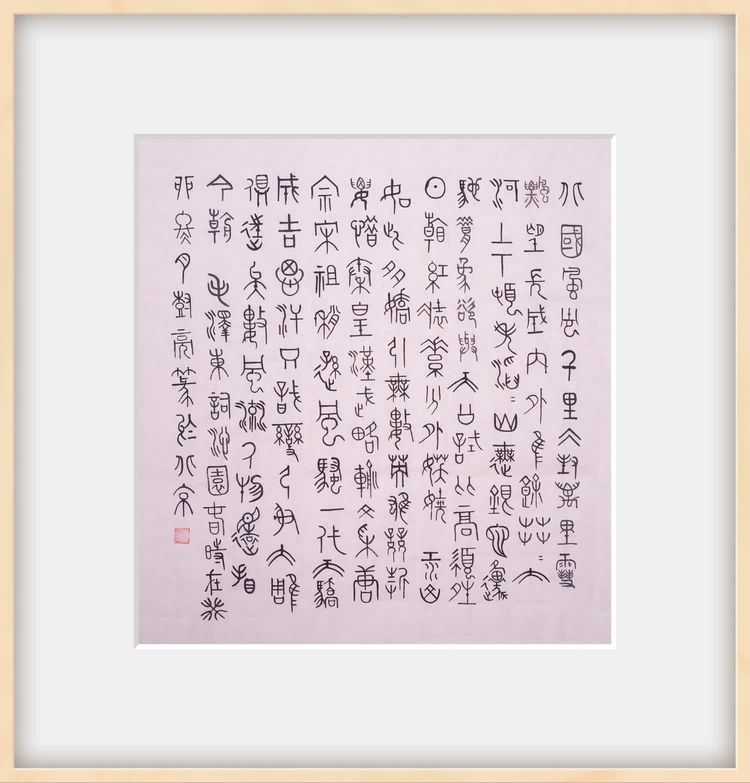 北國風光千里冰封萬里雪
飄望長城內外惟餘莽=大
河上下頓失滔=山舞銀蛇原
馳蠟象欲與天公試比高須晴
日看紅裝素裹分外妖嬈江山
如此多嬌引無數英雄競折
腰惜秦皇漢武略輸文采唐
宗宋祖稍遜風騷一代天驕
成吉思汗只識彎弓射大雕
俱往矣數風流人物還看
今朝 毛澤東詞沁園春時在癸
卯冬月彭亮篆於北京